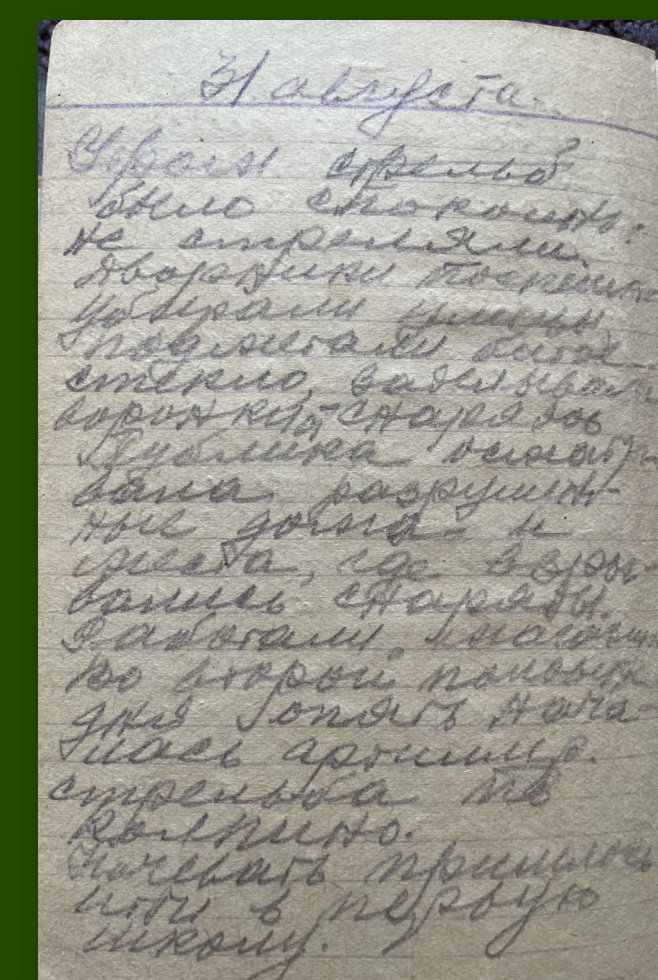 31 августа.
стрельб
было спокойно.
не стреляли.
Дворники поспешно
убирали улицы,
подметали битое
стекло, заделывали
воронки от снарядов
Публика осматри-
вала разрушен-
ные дома и
места, где взры-
вались снаряды.
Работали
во второй половине
дня опять нача-
лась артиллер.
стрельба по
Колпино.
Ночевать пришлось
итти в первую
школу.